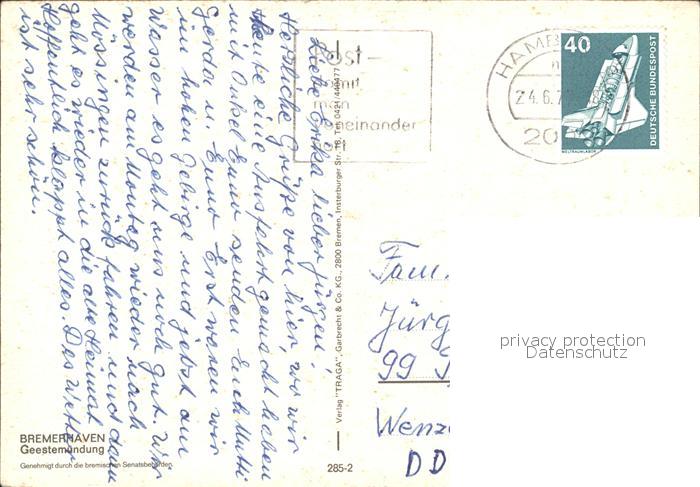 Liebe Erika, lieber Jürgen!
Herzliche Grüße von hier, wo wir
heute eine Ausfahrt gemacht haben
mit Onkel Enno senden Euch Mutti
Gerda u. Enno Erst waren wir
im hohen Gebirge und jetzt am
Wasser es geht uns noch gut. Wir
werden am Montag wieder nach
Mössingen zurück fahren und dann
geht es wieder in die alte Heimat
Hoffentlich klappt alles. Das Wetter
ist sehr schön.
BREMERHAVEN
Geestemündung
Genehmigt durch die bremischen Senatsbehörden
Verlag "TRAGA", Garbrecht & Co. KG., 2800 Bremen, Insterburger Str. 18, Tel. 0421/444477
285-2
Post-
damit
man
voneinander
hört
HAMB
24.6.7
20
40
DEUTSCHE BUNDESPOST
WELTRAUMLABOR
Fam.
Jürg
99
Wenz
DD
privacy protection
Datenschutz